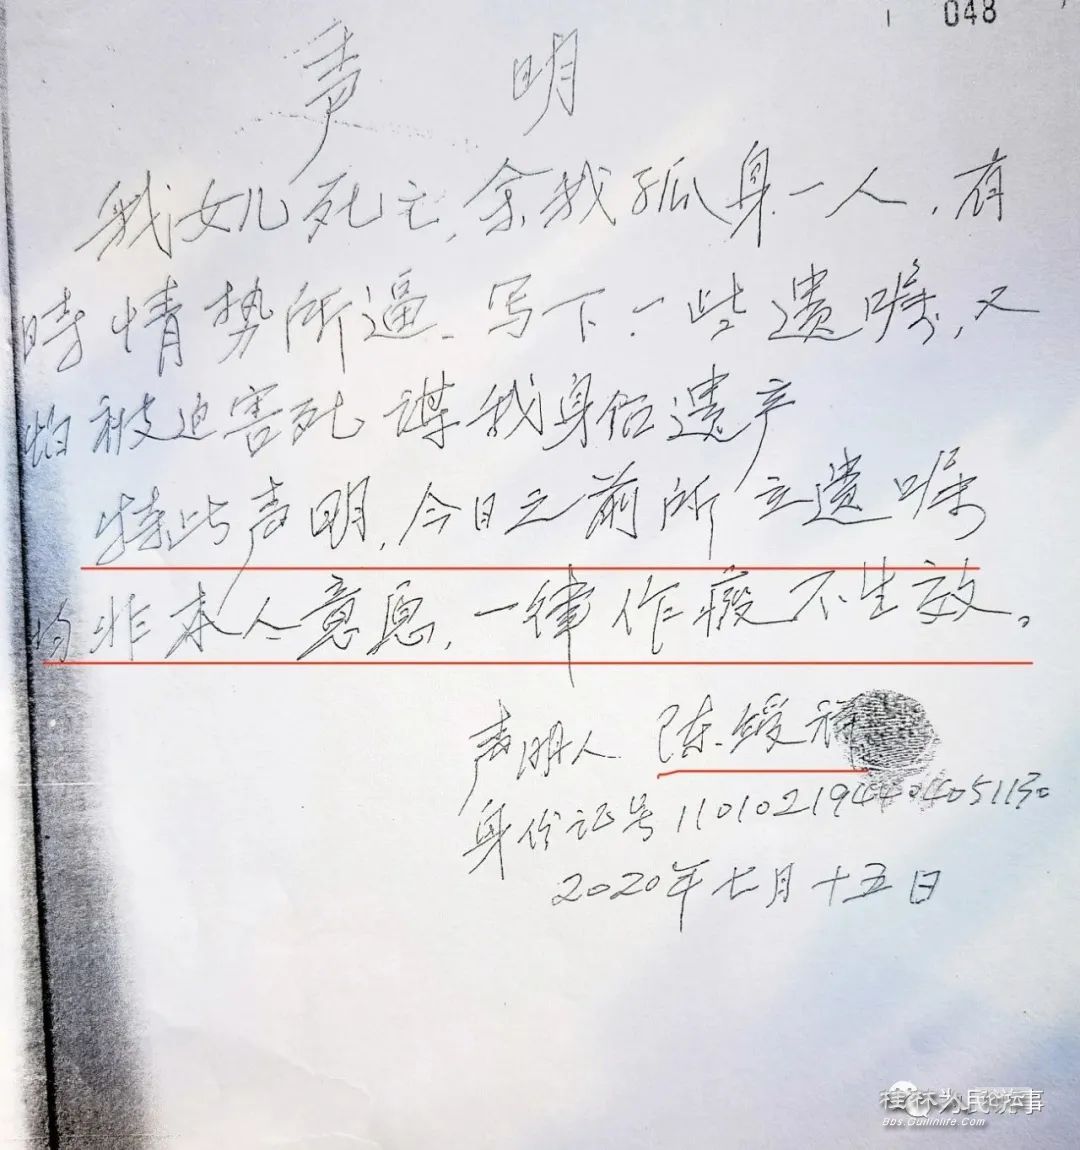 048
声 明
我女儿死亡,余我孤身一人,有
时情势所逼、写下一些遗嘱,又
怕被迫害死 谋我身后遗产
特此声明,今日之前所立遗嘱
均非本人意愿,一律作废不生效。
声明人 陈绶祥
身份证号 11010219440405113
2020年七月十五日
桂林
Bbs.Guilinlife.Com